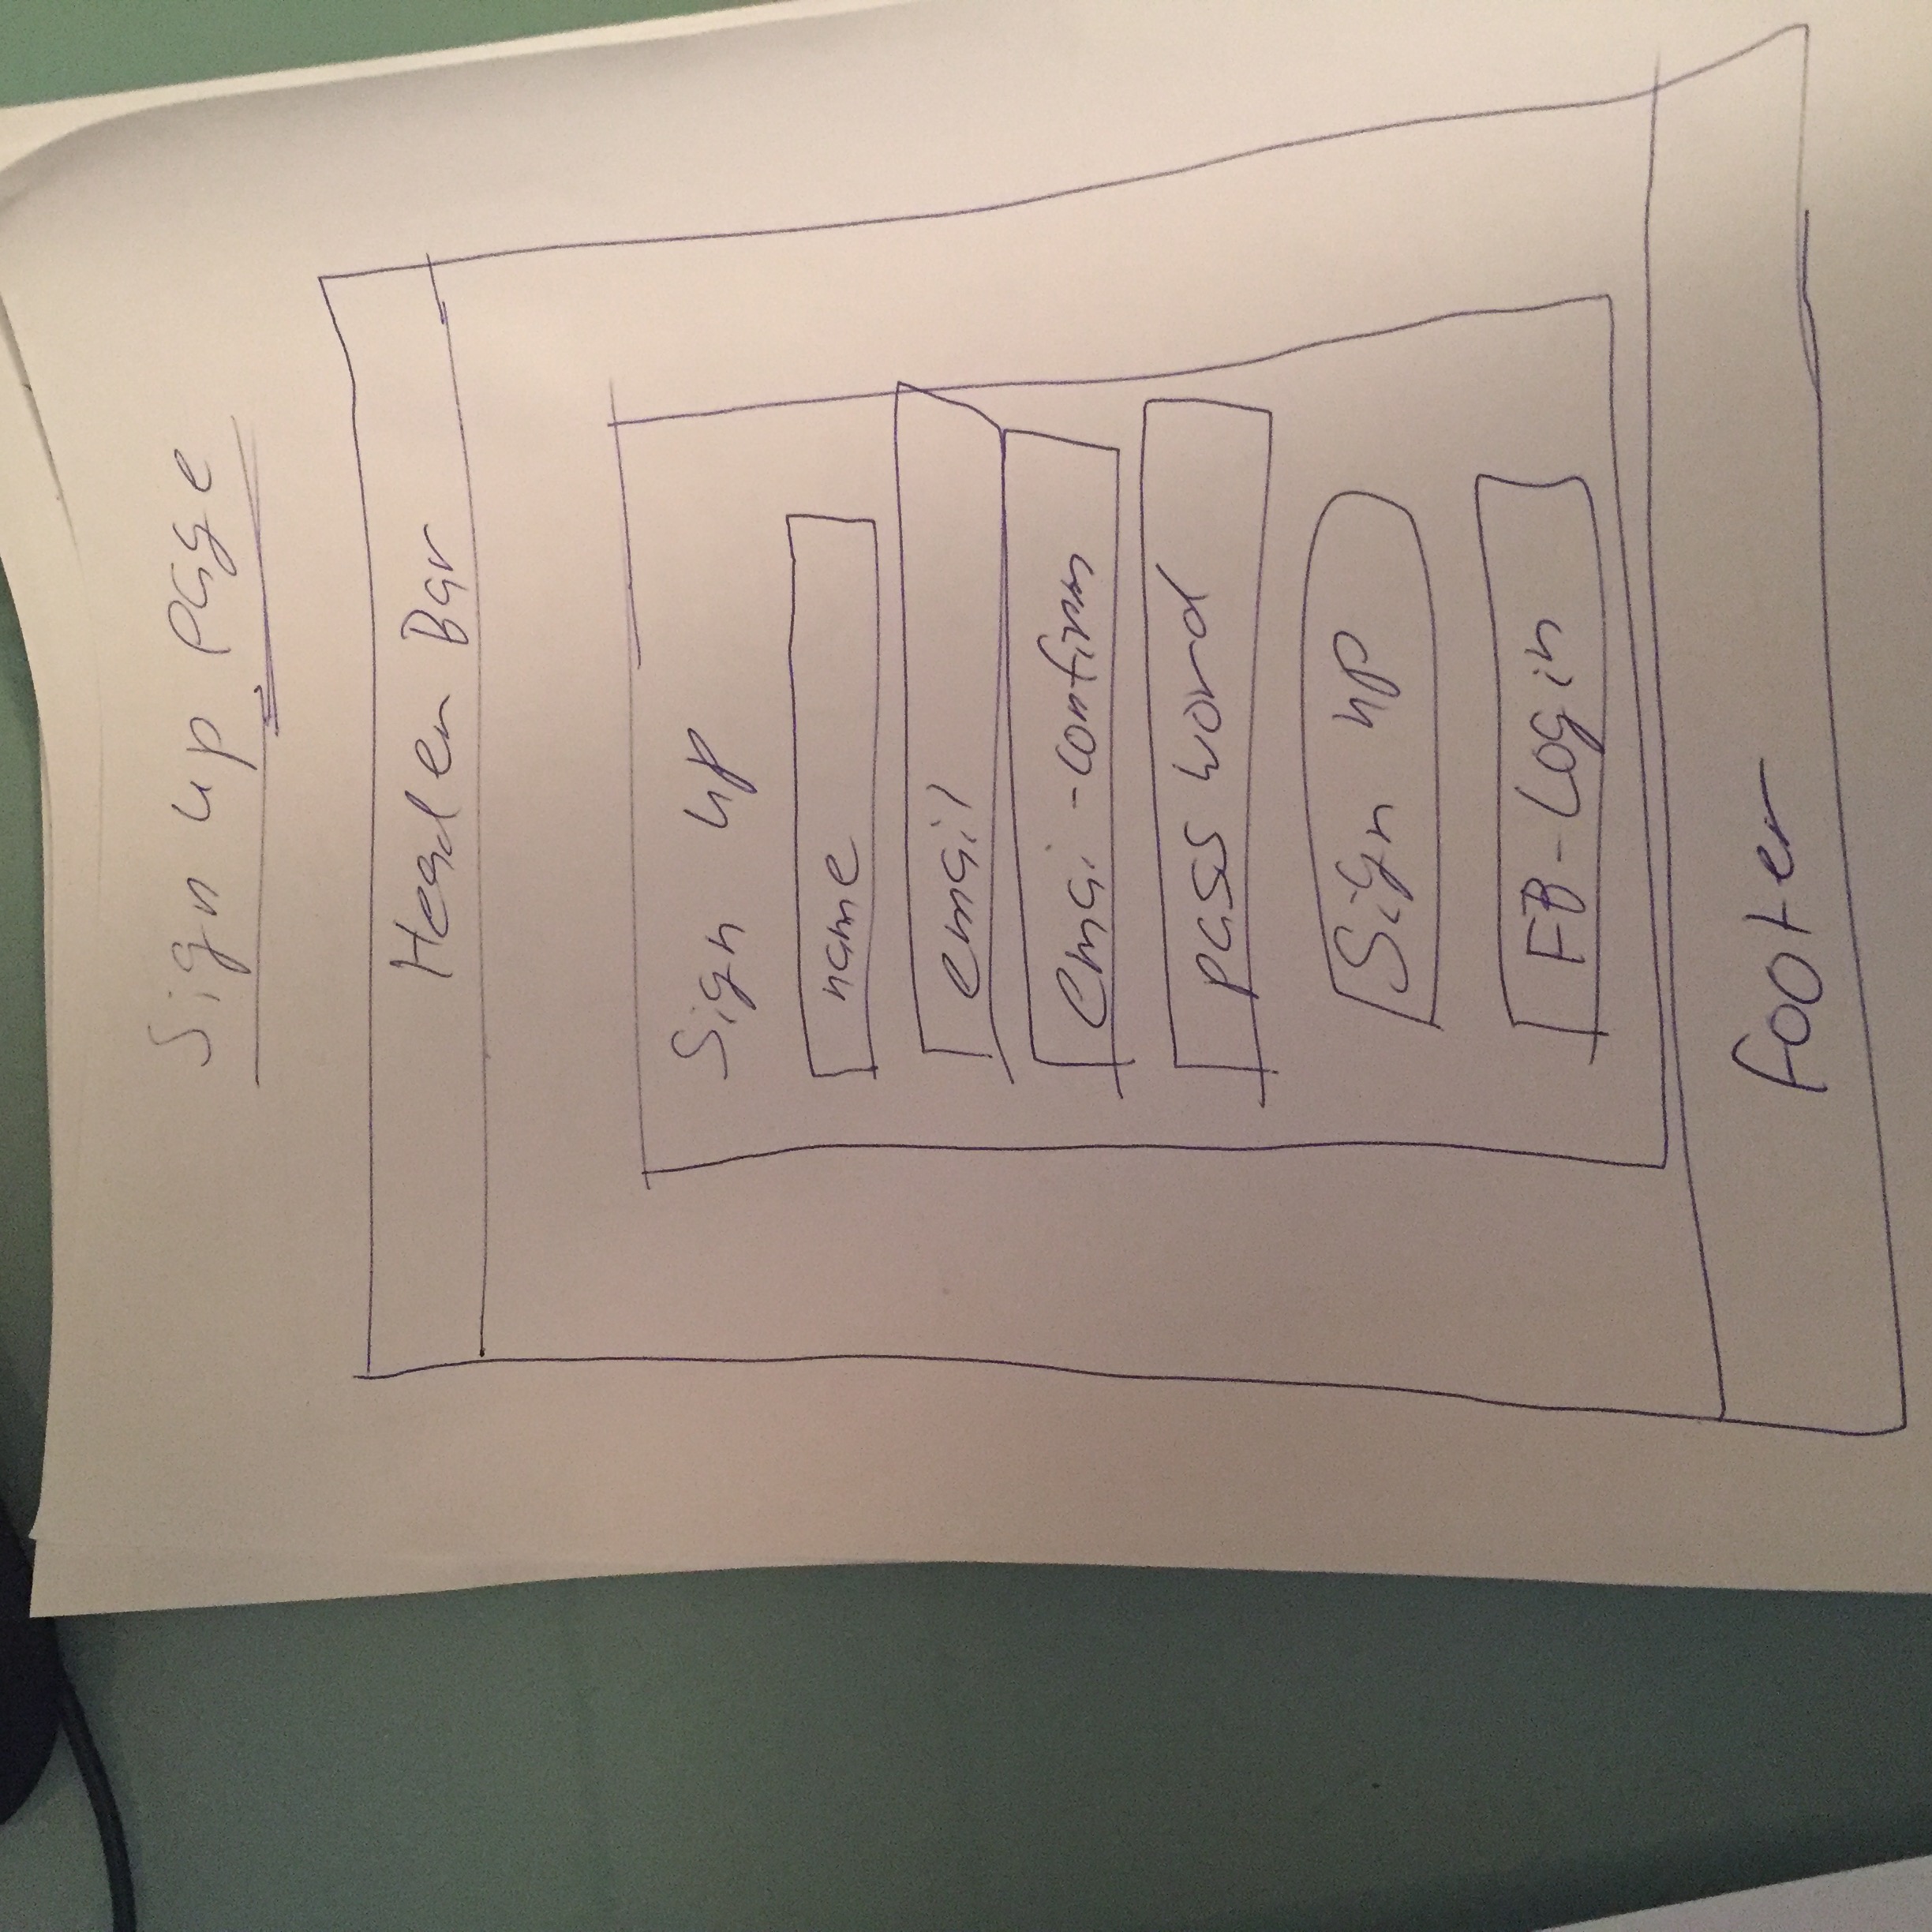 Sign up page
Header Bar
Sign up
name
email
emai-confirm
password
Sign up
FB-Login
footer